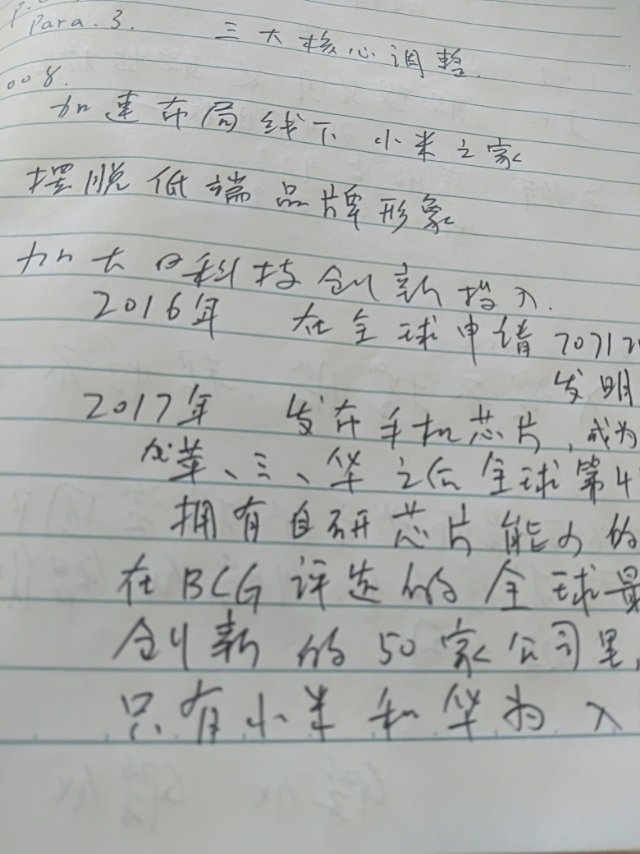 Para.3. 三大核心调整.
008.
加速布局线下小米之家
摆脱低端品牌形象
加大口科技创新投入.
2016年 在全球申请7071
发明
2017年 发布手机芯片,成为
苹、三、华之后全球第4
拥有自研芯片能力的
在BCG评选的全球最
创新的50家公司里,
只有小米和华为入